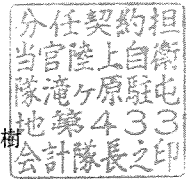 分任契約担
当官陸上自衛
隊滝ヶ原駐屯
地第433
会計隊長之印
樹